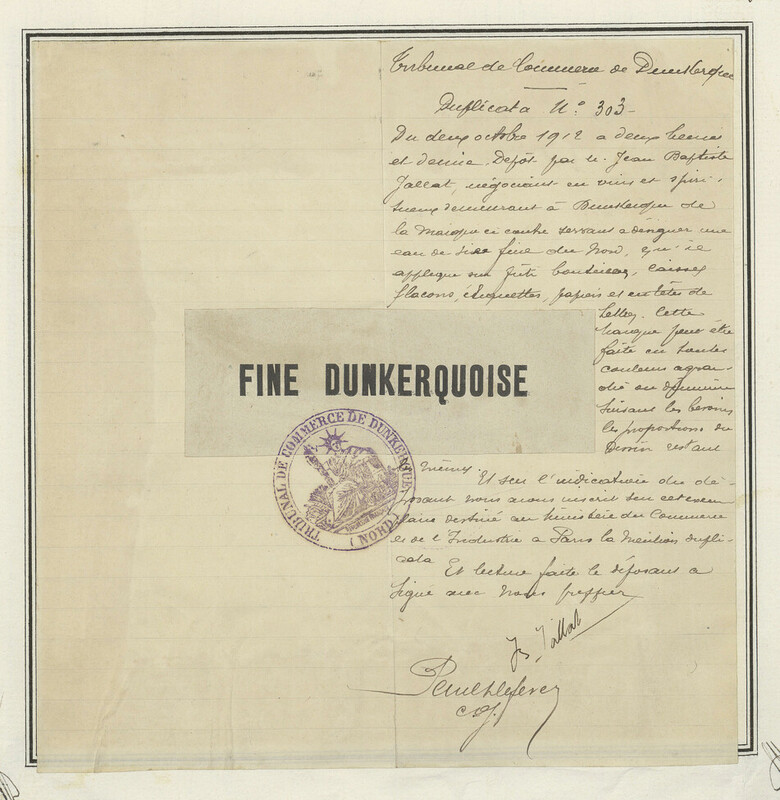 Tribunal de Commerce de Dunkerque
Duplicata N° 303
Du deux octobre 1912 a deux heures
et demie, Dépôt par M. Jean Baptiste
Jallat, négociant en vins et spiri-
tueux demeurant à Dunkerque de
la Marque ci contre servant a désigner une
eau de vie fine du Nord, qu'il
applique sur fûts bouteilles, caisses
flacons, étiquettes, papiers et entêtes de
lettres. Cette
marque peut être
faite en toutes
couleurs agran-
die ou diminuée
suivant les besoins
les proportions du
Dessin restant
mêmes.
FINE DUNKERQUOISE
TRIBUNAL DE COMMERCE DE DUNKERQUE
(NORD)
Et sur l'indication du dé-
posant nous avons inscrit sur cet exem-
plaire destiné au Ministère du Commerce
et de l'Industrie a Paris la Mention dupli-
cata
Et lecture faite le déposant a
signé avec nous greffier
JB Jallat